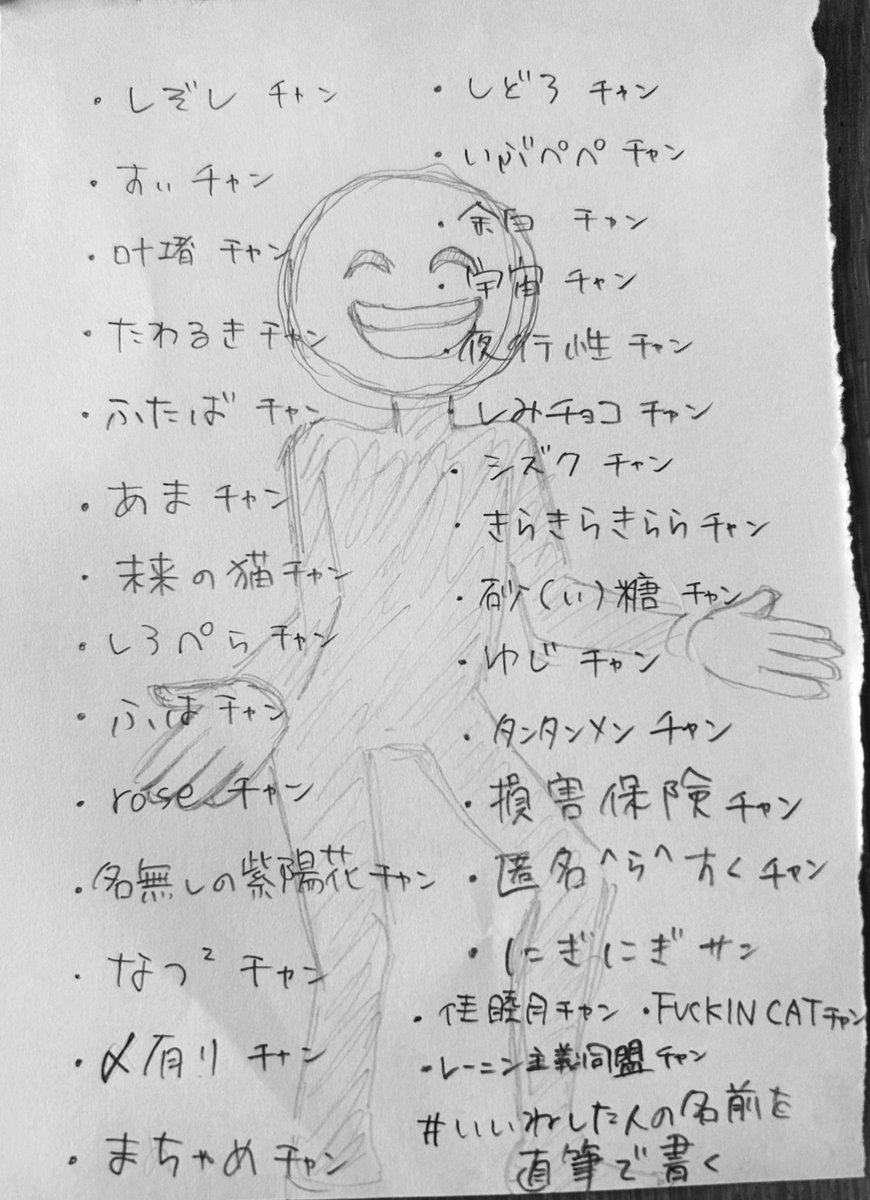 ・しぞし チャン
・すい チャン
・叶堵 チャン
・たわるき チャン
・ふたば チャン
・あま チャン
・未来の猫 チャン
・しろぺら チャン
・ふは チャン
・rose チャン
・名無しの紫陽花 チャン
・なつ² チャン
・〆有リ チャン
・まちゃめ チャン
・しどろ チャン
・いぶぺぺ チャン
・余白 チャン
・宇宙 チャン
・夜行性 チャン
・しみチョコ チャン
・シズク チャン
・きらきらきらら チャン
・砂(い)糖 チャン
・ゆじ チャン
・タンタンメン チャン
・損害保険 チャン
・匿名^ら^ チャン
・にぎにぎ サン
・佳睦月チャン ・FUCKIN CATチャン
・レーニン主義同盟 チャン
#いいねした人の名前を
直筆で書く